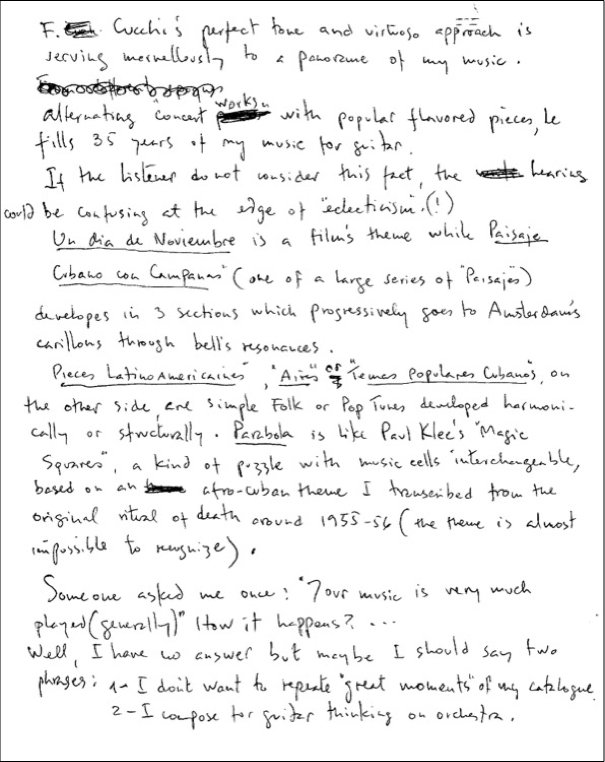 F. Cucchi's perfect tone and virtuoso approach is
serving mervellously to a panorama of my music.
alternating "concert works" with popular flavored pieces, he
fills 35 years of my music for guitar.
If the listener do not consider this fact, the hearing
could be confusing at the edge of "eclecticism". (!)
Un dia de Noviembre is a film's theme while Paisaje
Cubano con Campanas" (one of a large series of "Paisajes)
developes in 3 sections which progressively goes to Amsterdam's
carillons through bell's resonances.
Pieces Latino Americaines", "Aires" or "Temas Populares Cubanos, on
the other side, are simple Folk or Pop Tunes developed harmoni-
cally or structurally. Parabola is like Paul Klee's "Magic
Squares", a kind of puzzle with music cells interchangeable,
based on an afro-cuban theme I transcribed from the
original ritual of death around 1955-56 (the theme is almost
impossible to recognize).
Someone asked me once: "Your music is very much
played (generally)" How it happens? ...
Well, I have no answer but maybe I should say two
phrases: 1- I don't want to repeate "great moments" of my catalogue
2- I compose for guitar thinking on orchestra.